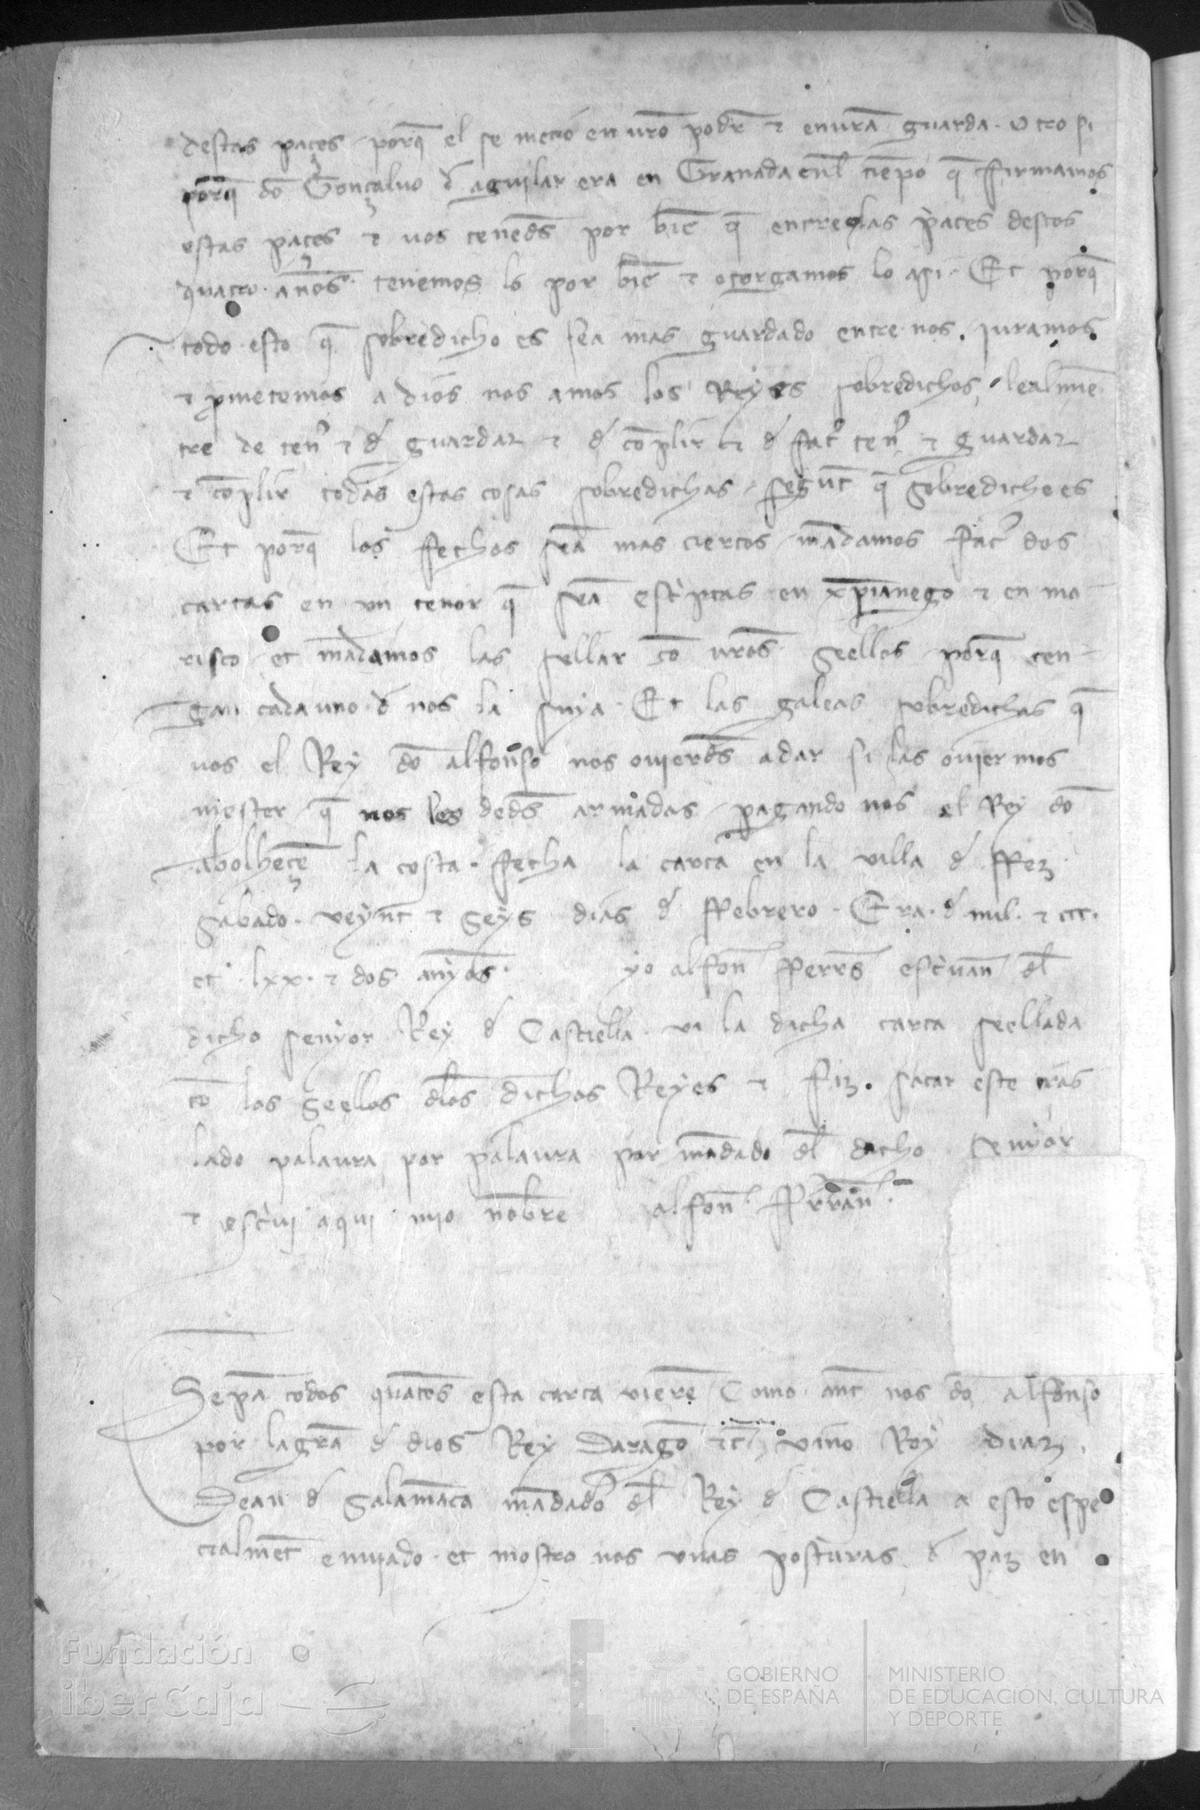 destas paçes porq̄ el se metio en vr̄o podr̄ ⁊ en vr̄a guarda. Otro si
porq̄ dō Gonçaluo đ aguilar era en Granada enl tiempo q̄ ffirmamos
estas paçes ⁊ uos teneds por biē q̄ entre en las paçes destos
quatro años. tenemos lo por biē ⁊ otorgamos lo assi. Et porq̄
todo esto q̄ sobredicho es sea mas guardado entre nos. juramos
⁊ ꝓmetemos a dios nos amos los Reyes sobredichos lealmē
tre de ten̉ ⁊ đ guardar ⁊ đ cōplir ⁊ đ fac̉ ten̉ ⁊ guardar
⁊ cōplir todas estas cosas sobredichas segūt q̄ sobredicho es
Et porq̄ los ffechos seā mas ciertos mādamos fac̉ dos
cartas en vn tenor q̄ seā esc̉ptas en xp̄ianego ⁊ en mo
risco et mādamos las sellar cō nr̄os seellos porq̄ ten
gan cada uno đ nos la suya. Et las galeas sobredichas q̄
uos el Rey dō alfonso nos ouierds a dar si las ouiermos
mester q̄ nos las deds armadas pagando nos el Rey dō
abolhaçē la costa. ffecha la carta en la villa đ ffez
sabado. veynt ⁊ seys dias đ ffebrero. Era. đ mil. ⁊ ccc.
et. lxx. ⁊ dos anyos. yo alfon̄ fferrs esc̉uan̄ dl
dicho senyor Rey đ Castiella vi la dicha carta seellada
cō los seellos dlos dichos Reyes ⁊ fiz. sacar este tras
lado palaura por palaura por mādado dl dicho senyor
⁊ esc̉ui aqui mio nōbre alfon̄ fr̄ran̄.
Sepā todos quātos esta carta vierē Como ant nos dō alfonso
por la gr̄a đ dios Rey Daragō ⁊c̄ vino Roy diaz
Dean đ Salamāca mādadō dl Rey đ Castiella a esto espe
cialmēt enuiado et mostro nos vnas post̉uras đ paz en
Fundación
iberCaja
GOBIERNO
DE ESPAÑA
MINISTERIO
DE EDUCACIÓN, CULTURA
Y DEPORTE